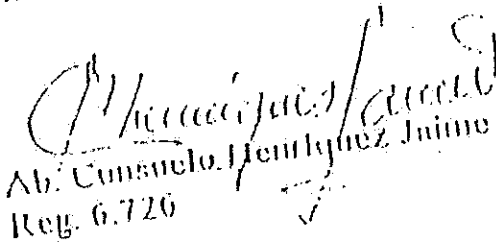 Ab. Consuelo Henríquez Jaime
Reg. 6.726